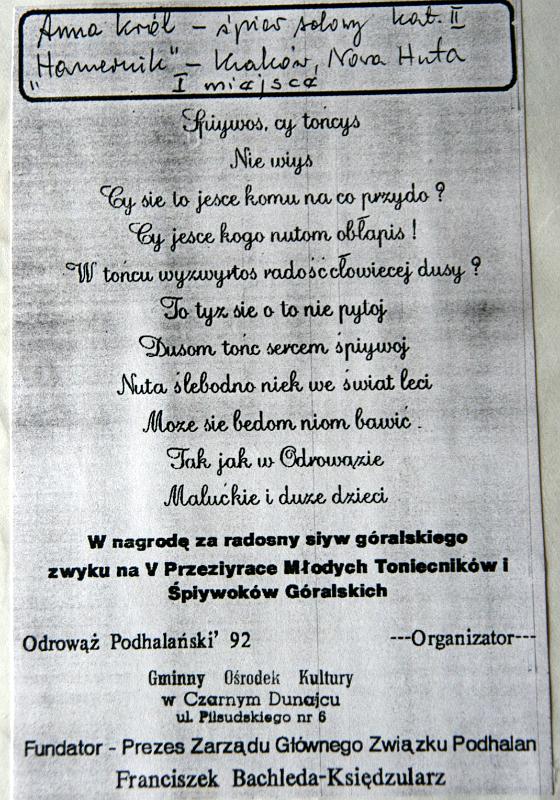 Anna Król - śpiew solowy kat. II
"Hamernik" - Kraków, Nowa Huta
I miejsce
Śpiywos, cy tońcys
Nie wiys
Cy sie to jesce komu na co przydo ?
Cy jesce kogo nutom obłapis !
W tońcu wyzwyrtos radość cłowiecej dusy ?
To tyz sie o to nie pytoj
Dusom tońc sercem śpiywoj
Nuta ślebodno niek we świat leci
Moze sie bedom niom bawić .
Tak jak w Odrowązie
Malućkie i duze dzieci
W nagrodę za radosny siyw góralskiego
zwyku na V Przeziyrace Młodych Toniecników i
Śpiywoków Góralskich
Odrowąż Podhalański' 92 ---Organizator---
Gminny Ośrodek Kultury
w Czarnym Dunajcu
ul. Piłsudskiego nr 6
Fundator - Prezes Zarządu Głównego Związku Podhalan
Franciszek Bachleda-Księdzularz